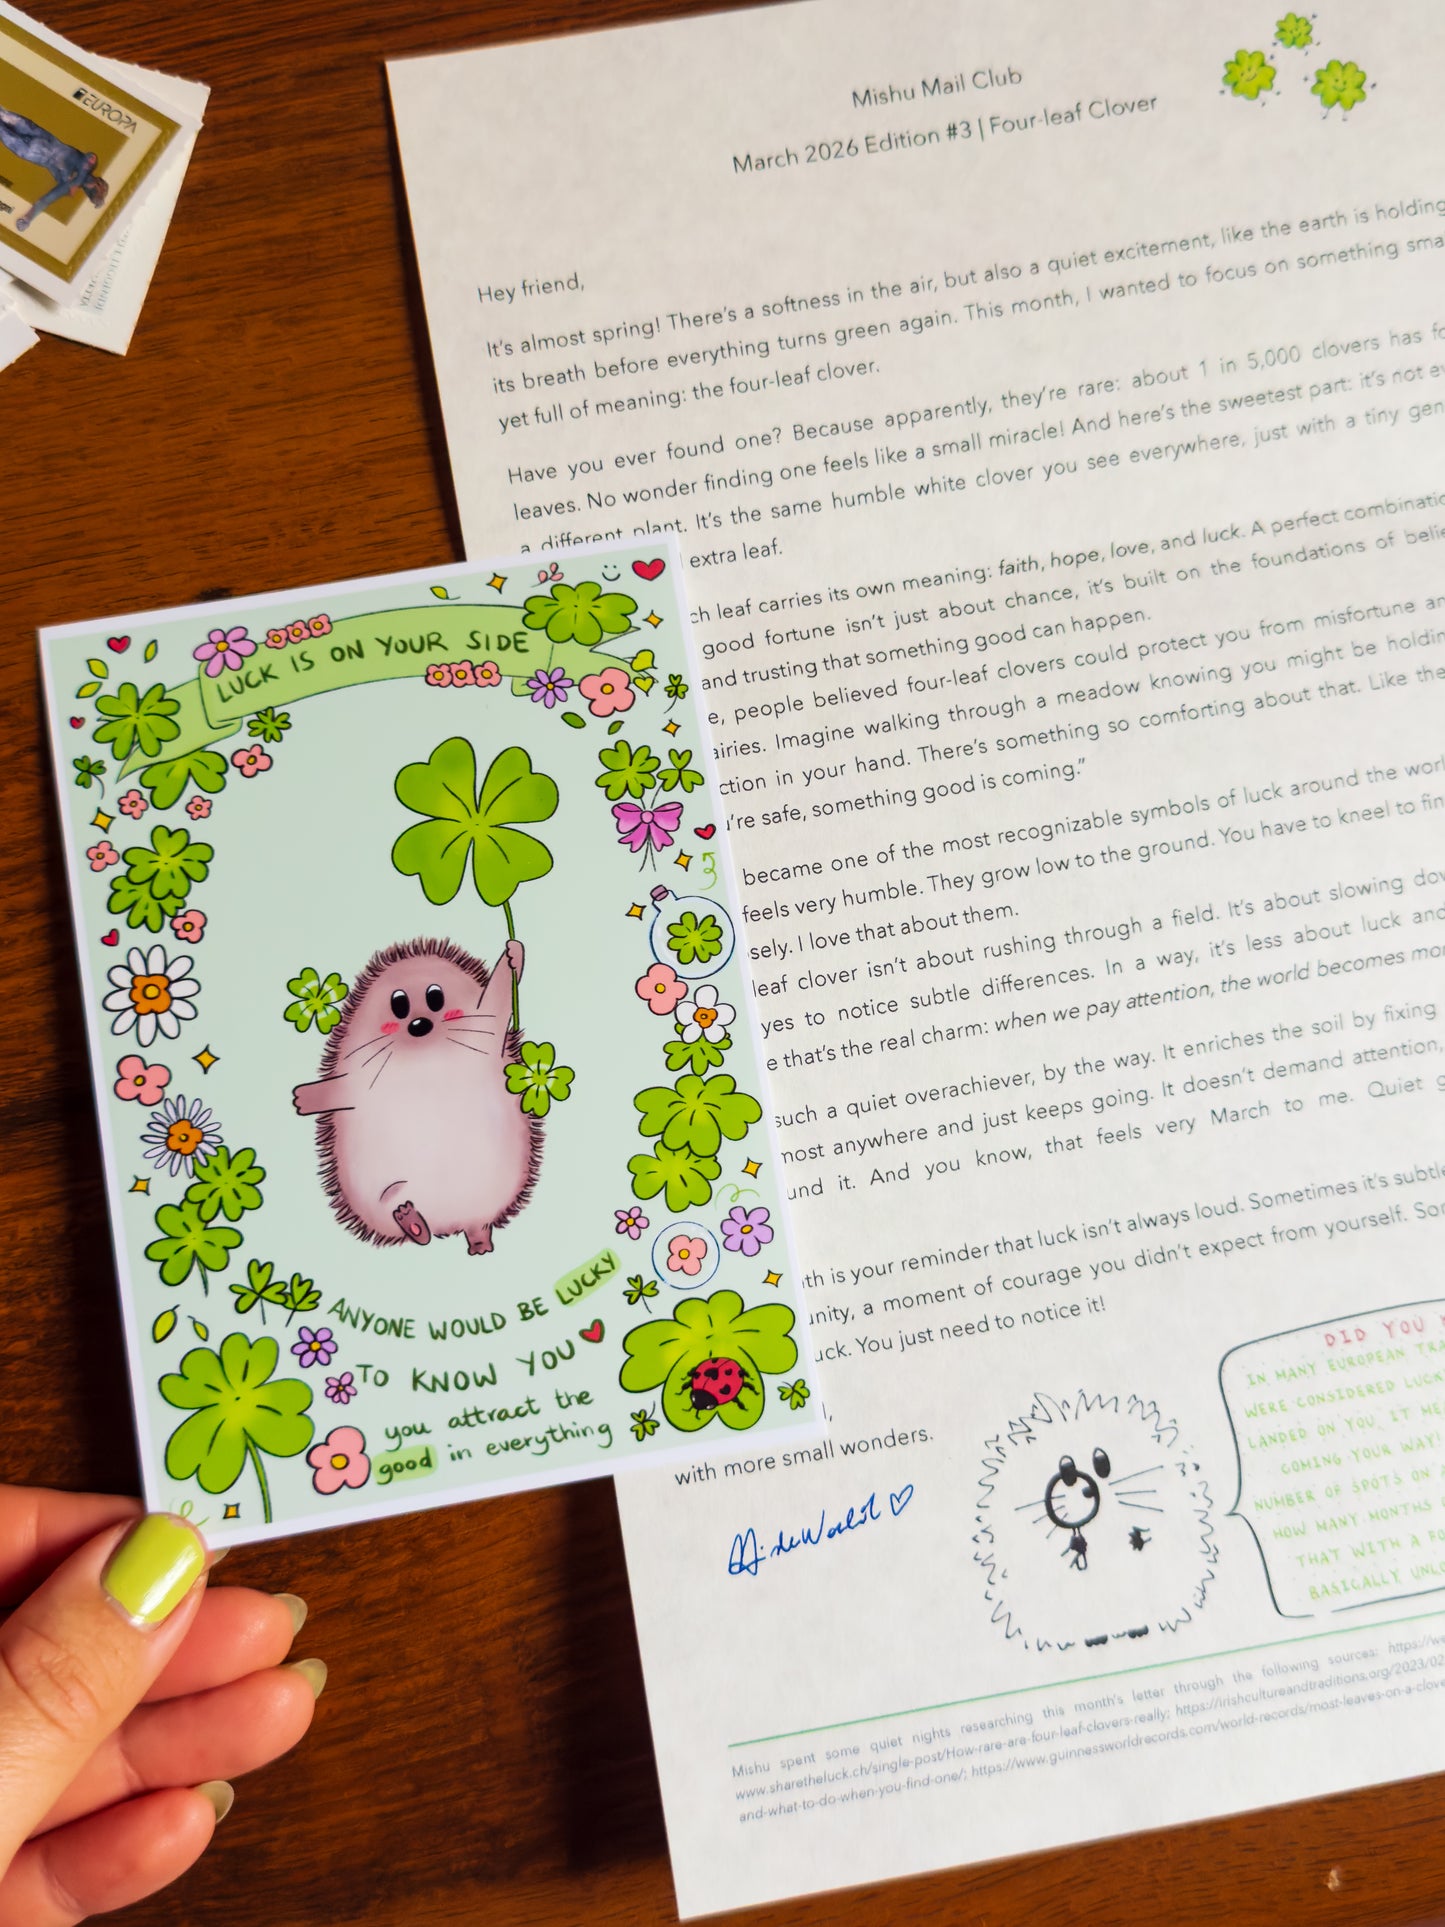 EUROPA
Mishu Mail Club
March 2026 Edition #3 | Four-leaf Clover
Hey friend,
It's almost spring! There's a softness in the air, but also a quiet excitement, like the earth is holding
its breath before everything turns green again. This month, I wanted to focus on something
yet full of meaning: the four-leaf clover.
Have you ever found one? Because apparently, they're rare: about 1 in 5,000 clovers has
leaves. No wonder finding one feels like a small miracle! And here's the sweetest part: it's not
a different plant. It's the same humble white clover you see everywhere, just with a tiny
extra leaf.
leaf carries its own meaning: faith, hope, love, and luck. A perfect
good fortune isn't just about chance, it's built on the foundations of
and trusting that something good can happen.
people believed four-leaf clovers could protect you from misfortune
Imagine walking through a meadow knowing you might be
in your hand. There's something so comforting about that. Like
safe, something good is coming."
became one of the most recognizable symbols of luck around the
feels very humble. They grow low to the ground. You have to kneel to
I love that about them.
leaf clover isn't about rushing through a field. It's about slowing
to notice subtle differences. In a way, it's less about luck and
that's the real charm: when we pay attention, the world becomes
such a quiet overachiever, by the way. It enriches the soil by fixing
anywhere and just keeps going. It doesn't demand attention,
it. And you know, that feels very March to me. Quiet
is your reminder that luck isn't always loud. Sometimes it's
a moment of courage you didn't expect from yourself.
You just need to notice it!
with more small wonders.
LUCK IS ON YOUR SIDE
ANYONE WOULD BE LUCKY
TO KNOW YOU
you attract the
good in everything
DID YOU
IN MANY EUROPEAN
WERE CONSIDERED
LANDED ON YOU, IT
COMING YOUR WAY!
NUMBER OF SPOTS ON
HOW MANY MONTHS
THAT WITH A
BASICALLY
Mishu spent some quiet nights researching this month's letter through the following sources:
www.sharetheluck.ch/single-post/How-rare-are-four-leaf-clovers-really; https://irishcultureandtraditions.org/2023/02
and-what-to-do-when-you-find-one/; https://www.guinnessworldrecords.com/world-records/most-leaves-on-a-clove